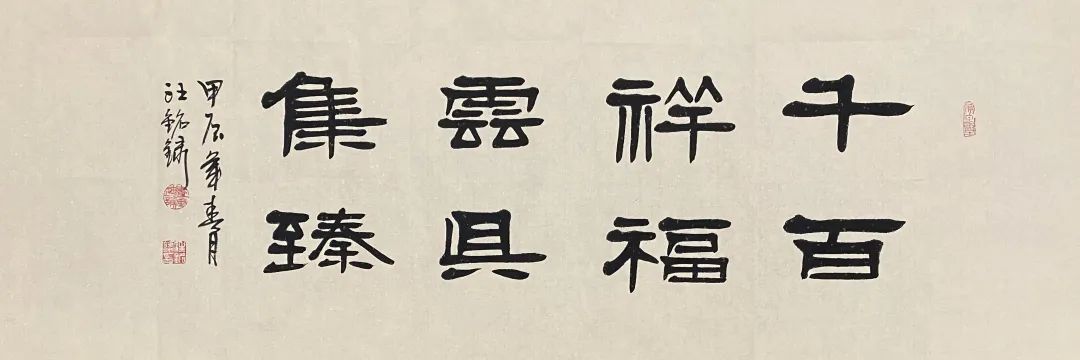 千祥雲集
百福具臻
甲辰年春月